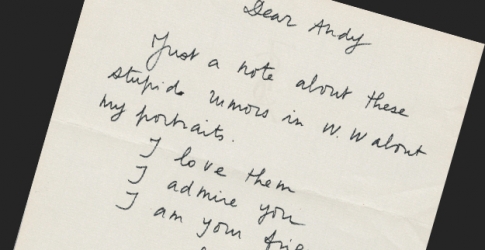 Dear Andy
Just a note about these
stupids rumors in W.W about
my portraits.
I love them
I admire you
I am your